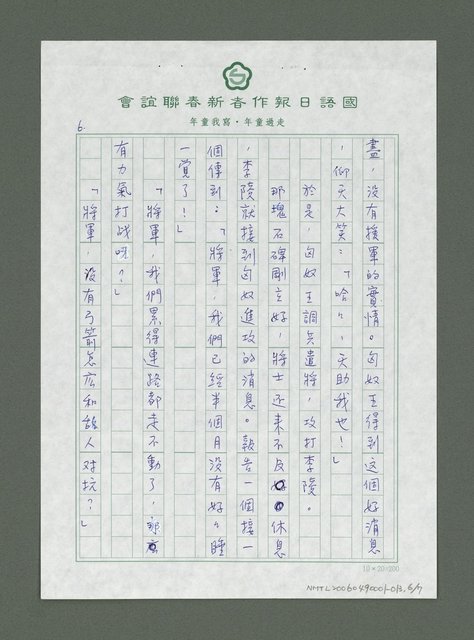 會誼聯春新者作報日語國
年童我寫・年童過走
6.
盡，沒有援軍的實情。匈奴王得到这個好消息
，仰天大笑：「哈々，天助我也！」
於是，匈奴王調兵遣將，攻打李陵。
那塊石碑剛立好，將士还来不及休息
，李陵就接到匈奴進攻的消息。報告一個接一
個傳到：「將軍，我們已經半個月沒有好々睡
一覚了！」
「將軍，我們累得連路都走不動了，那
有力氣打战呀？」
「將軍，沒有弓箭怎広和敌人对抗？」
10×20=200
NMTL20060490001-013, 6/7